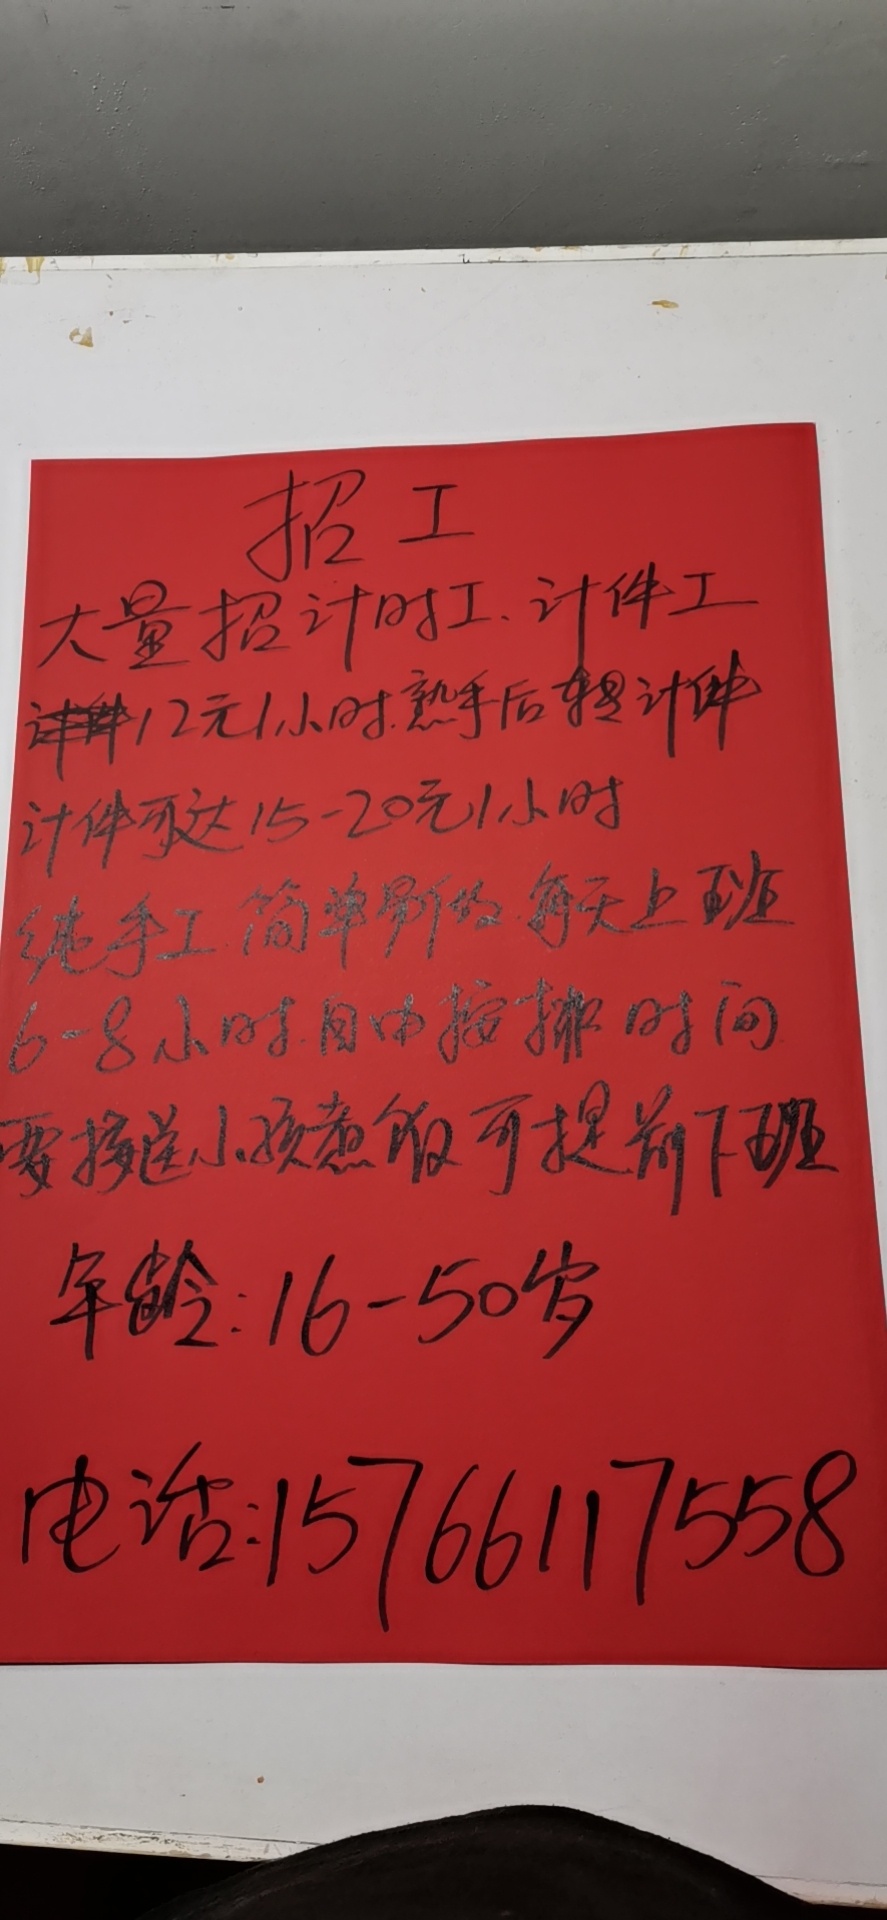 招工
大量招计时工、计件工
12元1小时.熟手后转计件
计件可达15-20元1小时
纯手工.简单易做.每天上班
6-8小时.自由按排时间
要接送小孩煮饭可提前下班
年龄:16-50岁
电话:15766117558